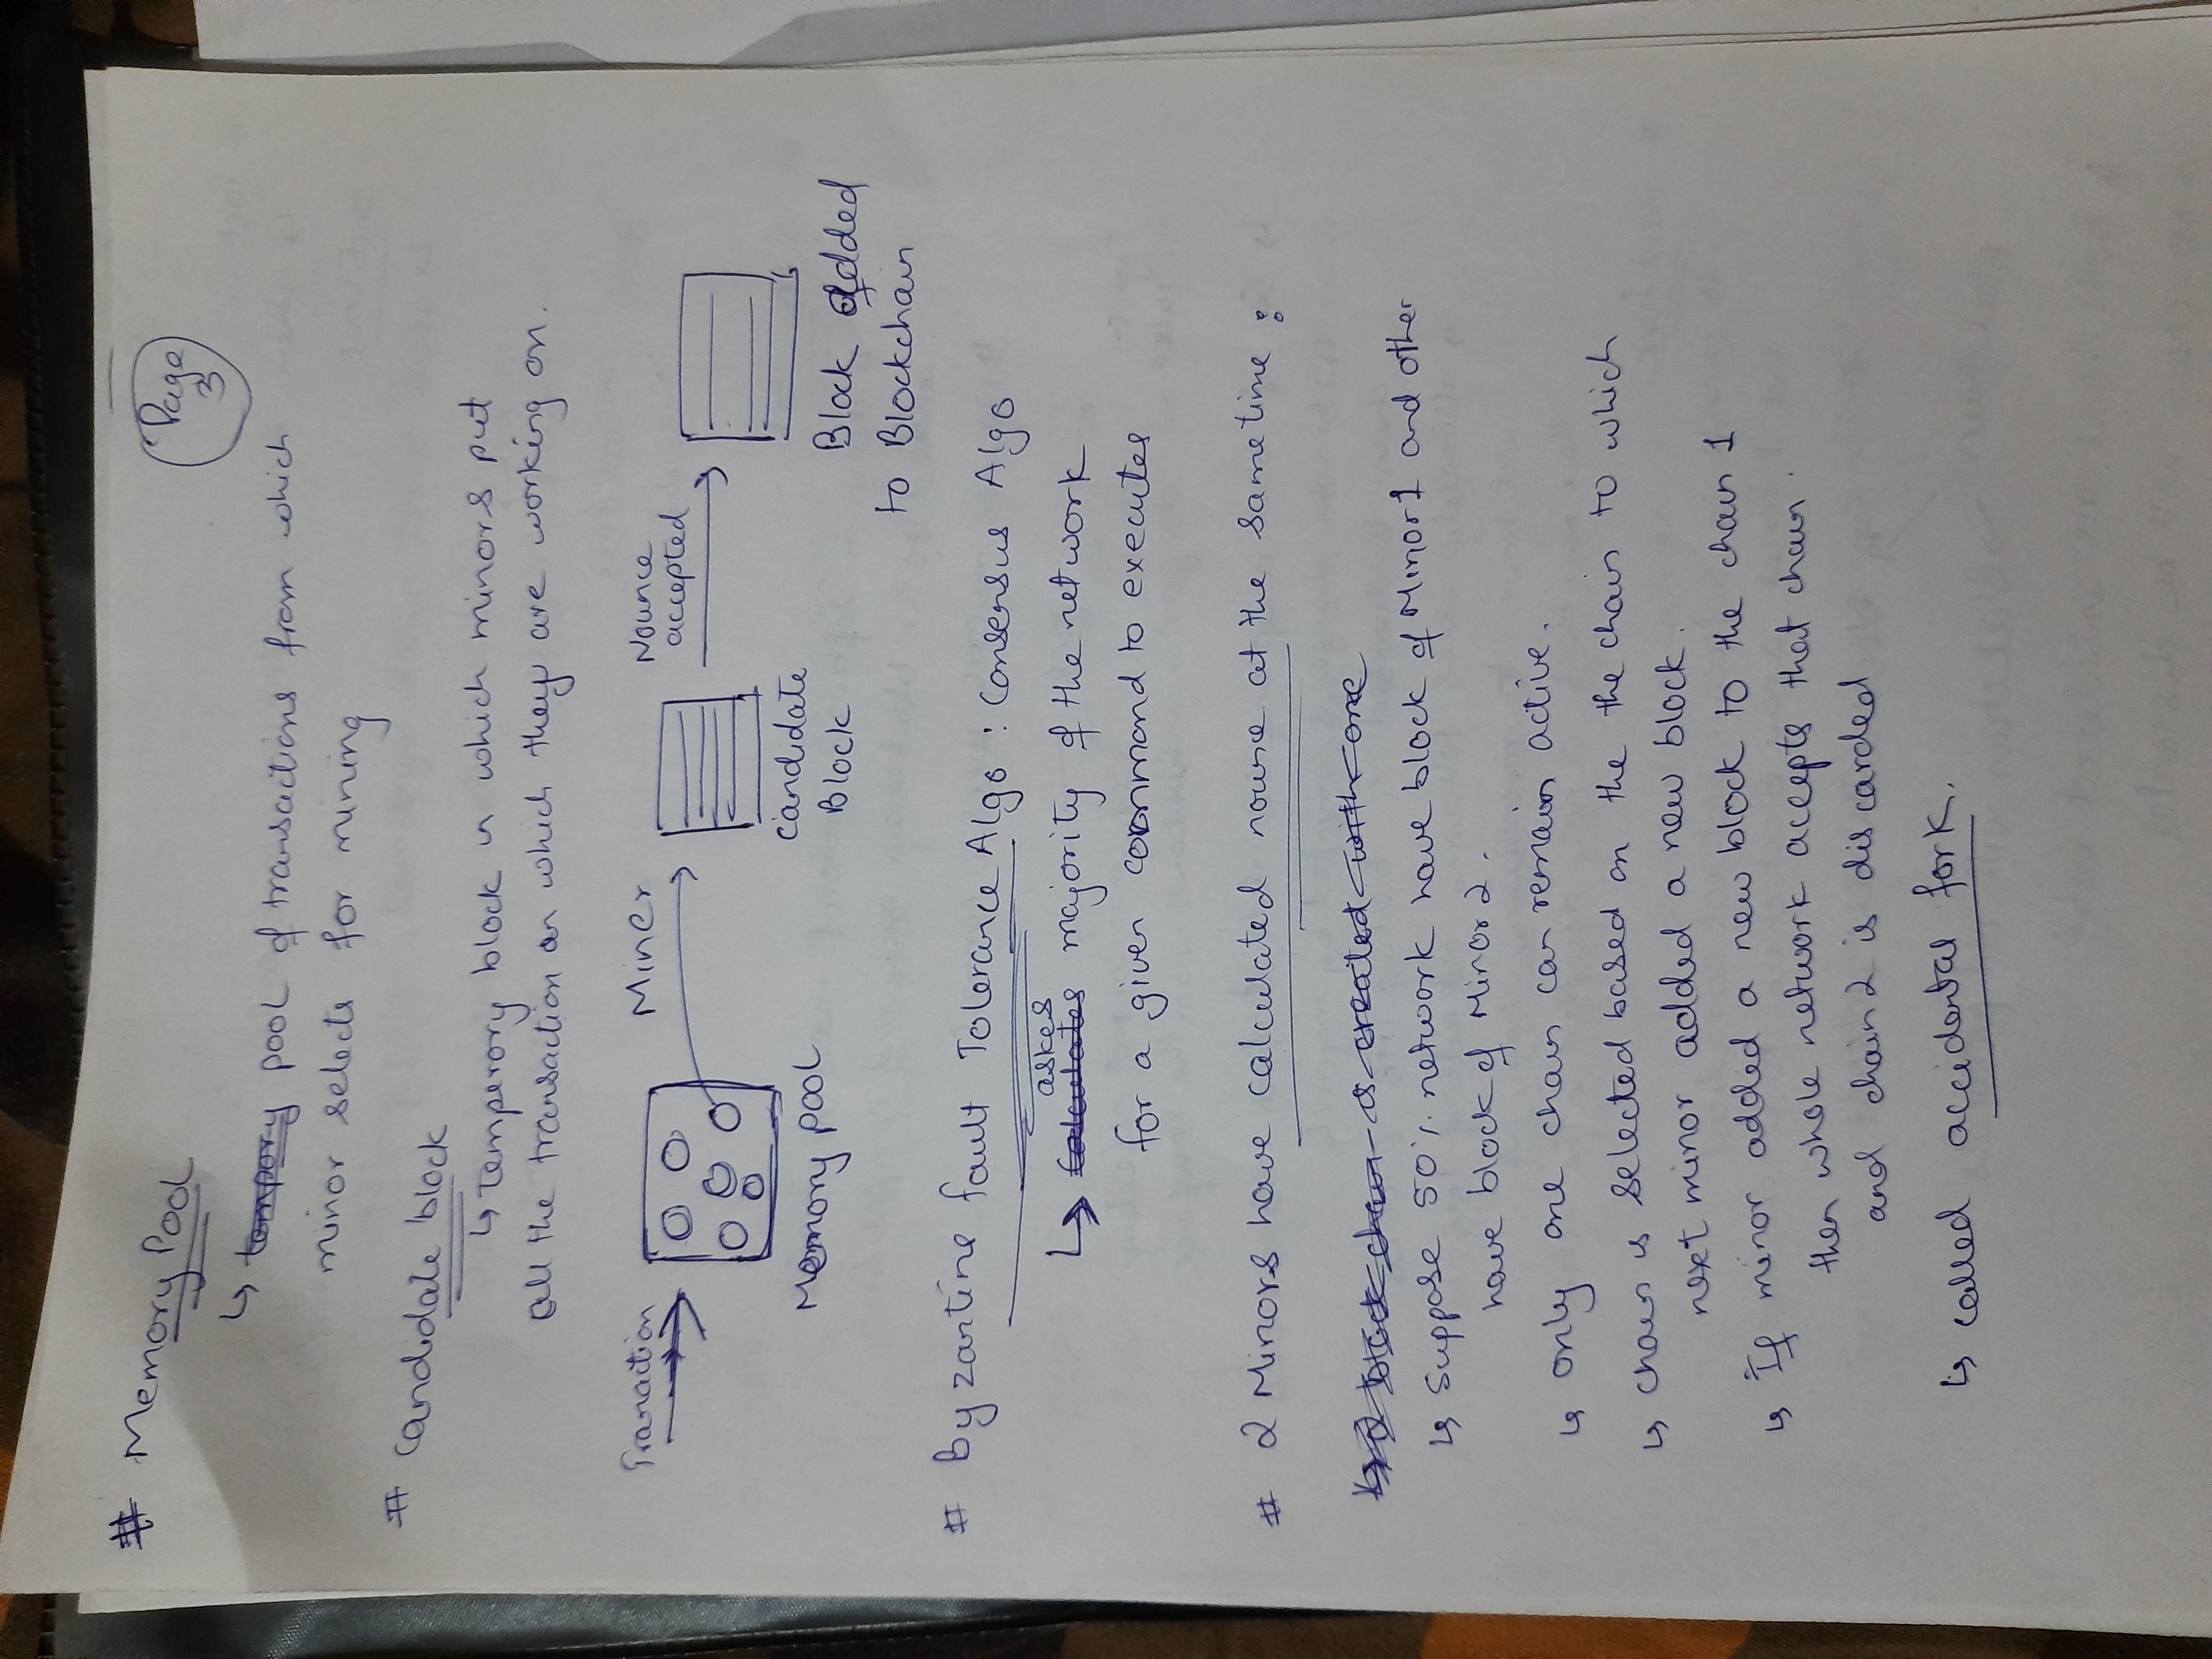 # Memory Pool
Page
3
↳ tempory pool of transactions from which
minor selects for mining
# Candidate block
↳ Temperory block in which minors put
all the transaction on which they are working on.
Tranaction
Miner
Nounce
accepted
Memory pool
Candidate
Block
Block added
to Blockchain
# Byzantine fault Tolerance Algo : Consensus Algo
askes
↳ calculates majority of the network
for a given command to executes
# 2 Minors have calculated nounce at the same time :
↳ 2 block chain is created with one
↳ Suppose 50% network have block of Minor 1 and other
have block of Minor 2.
↳ only one chain can remain active.
↳ chain is selected based on the the chain to which
next minor added a new block.
↳ If minor added a new block to the chain 1
then whole network accepts that chain.
and chain 2 is discarded
↳ called accidental fork.